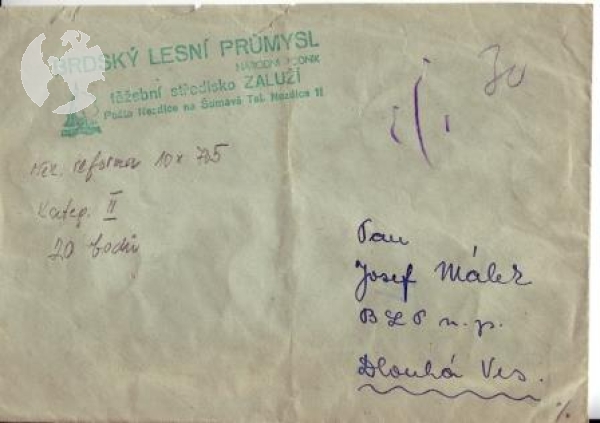 BRDSKÝ LESNÍ PRŮMYSL
NÁRODNÍ PODNIK
těžební středisko ZALUŽÍ
Pošta Nezdice na Šumavě Tel. Nezdice 11
70
Nez. reforma 10x 75
Kateg. II
20 bodů
Pan
Josef Málek
BLP n.p.
Dlouhá Ves.